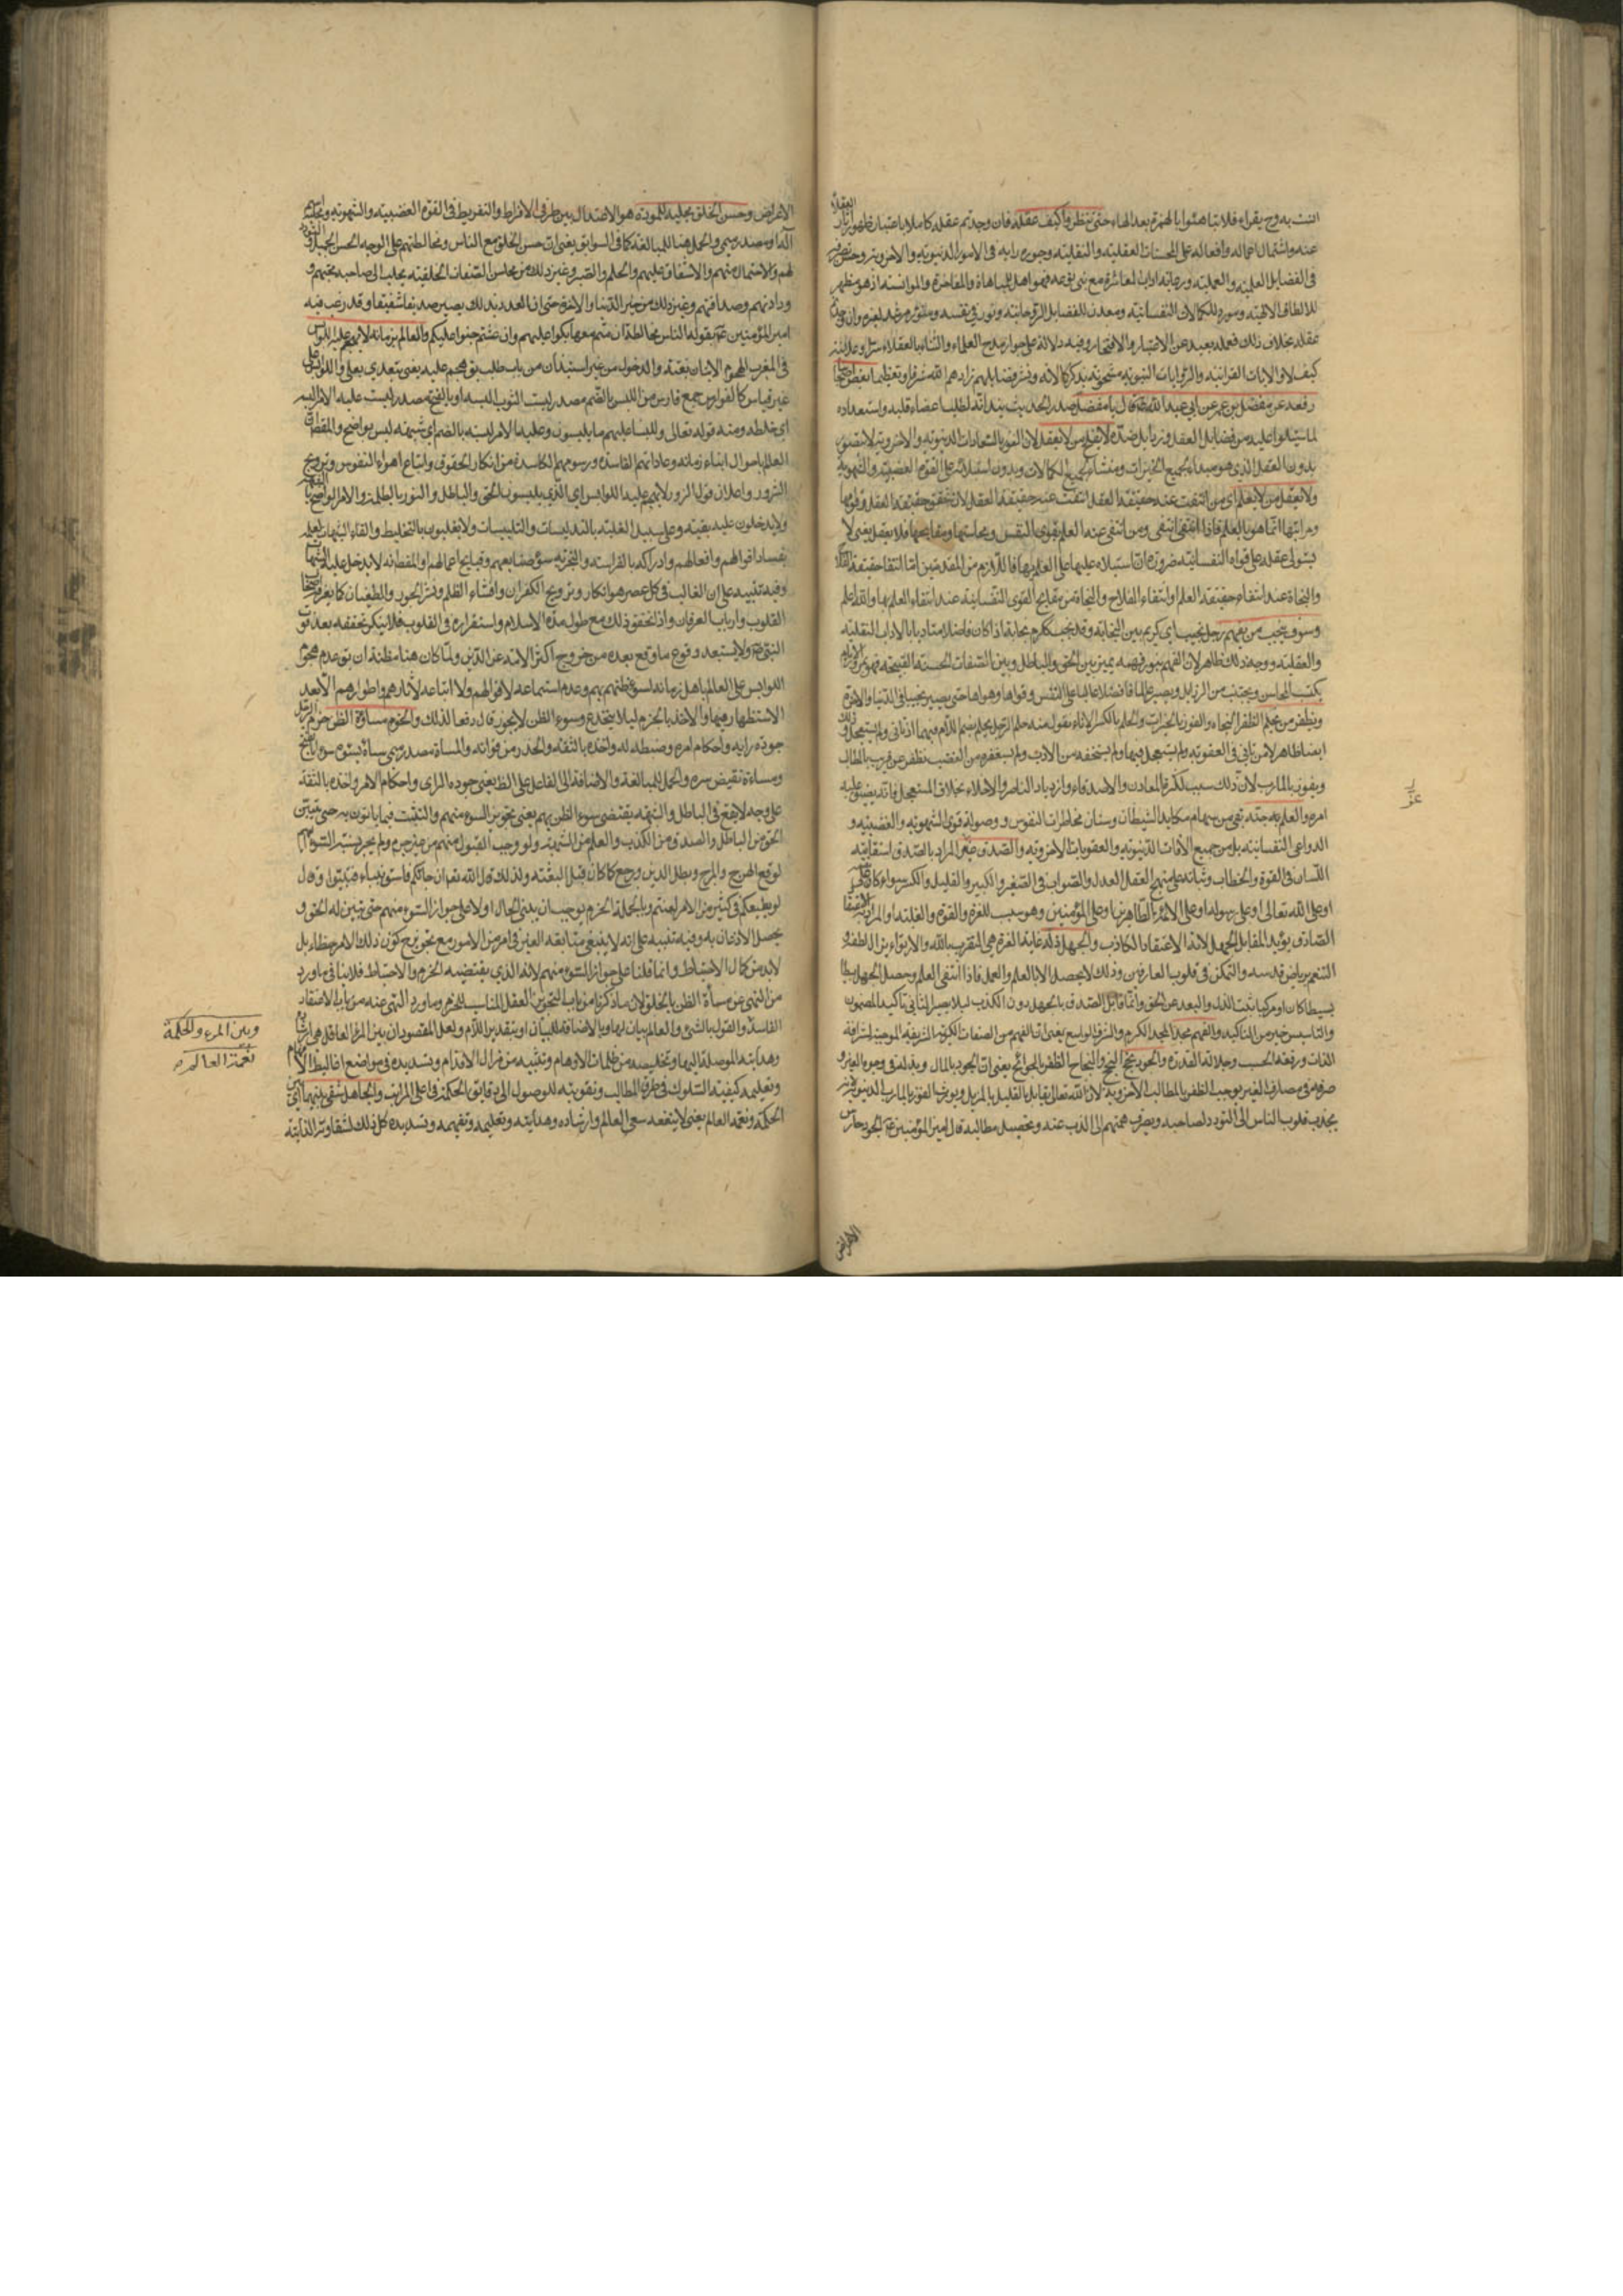 انت به وح يقراء فلا تباهئوا بالهمزة بعد الهاء حتى تنظروا كيف عقله فان وجدتم عقله كاملا باعتبار ظهور اثار العقلاء
عنه واشتمال اعماله وافعاله على المحسنات العقلية والنقلية وجوده رايه في الامور الدنيوية والاخروية
في الفضايل العلمية والعملية ورعاية اداب المعاشرة مع بني نوعه فهو اهل للمباهاة والمفاخرة والموانسة اذ هو مظهر
للالطاف الالهية
عقله بخلاف ذلك فعمله بعيد عن الاعتبار والافتخار وفيه دلالة على جواز مدح العلماء والثناء بالعقلاء
كيف لا والايات القرانية والروايات النبوية مشحونة بذكر كمالاته ونشر فضايلهم زادهم الله شرفا وتعظيما بعض اصحابنا
رفعه عن مفضل بن عمر عن ابي عبد الله قال يا مفضل صدر الحديث بندائه لطلب اعضاء قلبه واستعداده
لما يتلوا عليه من فضايل العقل ورذايل ضده لا يفلح من لا يعقل لان الفوز بالسعادات الدنيوية والاخروية لا يتصور
بدون العقل الذي هو مبداء لجميع الخيرات ومنشاء لجميع الكمالات وبدون استيلائه على القوة الغضبية والشهوية
ولا يعقل من لا يعلم اي من انتفت عنه حقيقة العلم انتفت عنه حقيقة العقل لان تحقق حقيقة العقل وقوامها
ومراتبها انما هو بالعلم فاذا انتفى انتفى ومن انتفى عنه العلم بقوى النفس ومحاسنها ومقابحها فلا يعقل يعني لا
يستولي عقله على قواه النفسانية ضرورة ان استيلاءه عليها على العلم بها فاللازم من المقدمتين
والنجاة عند انتفاء حقيقة العلم وانتفاء الفلاح والنجاة من مقابح القوى النفسانية عند انتفاء العلم بها والله اعلم
وسوف ينجب من يفهم رجل نجيب اي كريم بين النجابة وقد نجب ككرم نجابة اذا كان فاضلا متادبا بالاداب النقلية
والعقلية ووجه ذلك ظاهر لان الفهم بنور فهمه يميز بين الحق والباطل وبين الصفات الحسنة القبيحة
يكتسب المحاسن ويجتنب من الرذايل ويصير عالما فاضلا غالبا على النفس وقواها وهواها حتى يصير نجيبا في الدنيا والاخرة
ويظفر من يحلم الظفر النجاء والفوز بالخيرات والحلم بالكسر الاناة يقول منه حلم الرجل يحلم بضم اللام فيهما اذا تأنى ولم يستعجل وذلك
ايضا ظاهر لان من تانى في العقوبة ولم يستعجل فيها ولم يستخفه من الاذى ولم يستفزه من الغضب يظفر عن قريب بالمطالب
ويفوز بالمارب لان ذلك سبب لكثرة المعاون والاصدقاء وازدياد الناصر والاخلاء بخلاف المستعجل فانه يضيق عليه
امره والعلم به جنة تقي من سهام مكايد الشيطان وسنان مخاطرات النفوس وصولة قوى الشهوية والغضبية و
الدواعي النفسانية بل من جميع الافات الدنيوية والعقوبات الاخروية والصدق عز المراد بالصدق استقامة
اللسان في القوة والخطاب وثباته على منهج العقل العدل والصواب في الصغير والكبير والقليل والكثير سواء كان
او على الله تعالى او على رسوله او على الائمة الطاهرين او على المؤمنين وهو سبب للعزة والقوة والغلبة او المراد به الاعتقاد
الصادق يؤيد المقابل الجهل لانه الاعتقاد الكاذب والجهل ذل غاية العزة هي التقرب بالله والارتواء بزلال لطفه و
التنعم برياض قدسه والتمكن في قلوب العارفين وذلك لا يحصل الا بالعلم والعمل فاذا انتفى العلم وحصل الجهل
بسيطا كان او مركبا ثبت الذل والبعد عن الحق وانما قابل الصدق بالجهل دون الكذب ليلا يصير الثاني تاكيدا لمضمون
والتاسيس خير من التاكيد والفهم مجد المجد الكرم والشرف الواسع يعني ان الفهم من الصفات الكريمة الشريفة الموجبة لشرافة
الذات ورفعة الحسب وجلالة القدر والجود نجح النجح والنجاح الظفر بالحوائج يعني ان الجود بالمال وبذله في وجوه العز و
صرفه في مصارف الخير يوجب الظفر بالمطالب الاخروية لان الله تعالى يقابل القليل بالجزيل ويورث الفوز بالمارب الدنيوية لانه
يجذب قلوب الناس الى التودد لصاحبه ويصرف همتهم الى الذب عنه وتحصيل مطالبه قال امير المؤمنين ع الجود حارس
الاعراض
عز
الاعراض وحسن الخلق مجلبة للمودة هو الاعتدال بين طرفي الافراط والتفريط في القوة الغضبية والشهوية
اما مصدر ميمي والحمل هنا للمبالغة كما في السوابق يعني ان حسن الخلق مع الناس ومخالطتهم على الوجه الحسن الجميل
لهم والاحتمال منهم والاشفاق عليهم والحلم والصبر وغير ذلك من محاسن الصفات الخلقية يجلب الى صاحبه محبتهم و
ودادتهم وصداقتهم وغير ذلك من خير الدنيا والاخرة حتى ان العدو بذلك يصير صديقا شفيقا وقد رغب فيه
امير المؤمنين ع بقوله الناس مخالطة ان متم معها بكوا عليكم وان عشتم حنوا اليكم والعالم بزمانه لا تهجم عليه اللوابس
في المغرب الهجوم الاتيان بغتة والدخول من غير استيذان من باب طلب يق هجم عليه يعني يتعدى بعلى واللوابس على
غير قياس كالفوارس جمع فارس من اللبس بالضم مصدر لبست الثوب البسه او بالفتح مصدر لبست عليه الامر البسه
اي خلطه ومنه قوله تعالى وللبسنا عليهم ما يلبسون وعليه الامر لبسة بالضم اي شبهة ليس بواضح والمقصود ان
العالم باحوال ابناء زمانه وعاداتهم الفاسدة ورسومهم الكاسدة من انكار الحقوق واتباع اهواء النفوس وترويج
الشرور واعلان قول الزور لا تهجم عليه اللوابس اي الذي يلبسون الحق والباطل والنور بالظلمة والامر الواضح
ولا يدخلون عليه بغتة وعلى سبيل الغلبة بالتدليسات والتلبيسات ولا يغلبون بالتخليط والقاء الشبهات لعلمه
بفساد اقوالهم وافعالهم وادراكه بالفراسة والتجربة سوء صنايعهم وقبايح اعمالهم
وفيه تنبيه على ان الغالب في كل عصر هو انكار وترويج الكفران وافشاء الظلم ونشر الجور والطغيان كما يعرفه اصحاب
القلوب وارباب العرفان واذا تحقق ذلك مع طول مدة الاسلام واستقراره في القلوب فلا ينكر تحققه بعد فوت
النبي ولا يستبعد وقوع ما وقع بعده من خروج اكثر الامة عن الدين ولما كان هنا مظنة ان يق عدم هجوم
اللوابس على العالم باهل زمانه لسوء ظنهم بهم وعدم استماعه لاقوالهم ولا اتباعه لاثارهم واطوارهم
الاستظهار منها والاخذ بالحزم ليلا ينخدع وسوء الظن لا يجوز قال دفعا لذلك والحزم مساءة الظن حزم الرجل
جودة رايه واحكام امره وضبطه له واخذه بالثقة والحذر من فواته والمساءة مصدر ميمي
ومساءة نقيض سره والحمل للمبالغة والاضافة الى الفاعل على الظ يعني جوده الراى واحكام الامر واخذه بالثقة
على وجه لا يقع في الباطل والشبهة يقتضي سوء الظن بهم يعني تجويز السوء منهم والتثبت فيما ياتون به حتى يتبين
الحق من الباطل والصدق من الكذب والعلم من الشبهة ولو وجب القبول منهم من غير حزم ولم يجز نسبة السوء اليهم
لوقع الهرج والمرج وبطل الدين ورجع كما كان قبل البعثة ولذلك قال الله تعالى ان جاءكم فاسق بنباء فتبينوا وقال
لو يطيعكم في كثير من الامر لعنتم وبالجملة الحزم يوجب ان يبني الحال اولا على جواز السوء منهم حتى يتبين له الحق و
يحصل الاذعان به وفيه تنبيه على انه لا ينبغي متابعة الغير في امر من الامور مع تجويز كون ذلك الامر خطاء بل
لابد من كمال الاحتياط وانما قلنا على جواز السوء منهم لانه الذي يقتضيه الحزم والاحتياط فلا ينافي ما ورد
من النهي عن مساءة الظن بالخلق لان ما ذكرنا من باب التجويز العقلي المناسب للحزم وما ورد النهي عنه من باب الاعتقاد
وبين المرء والحكمة
نعمة العالم
وهدايته الموصلة اليها وتخليصه من ظلمات الاوهام وتثبيته من مزال الاقدام وتسديده في مواضع اغاليط الافهام
وتعليمه كيفية السلوك في طرق المطالب وتقويته للوصول الى دقائق الحكمة في اعلى المراتب والجاهل شقي بينهما اي بين
الحكمة ونعمة العالم يعني لا ينفعه سعي العالم وارشاده وهدايته وتعليمه وتفهيمه وتسديده كل ذلك لشقاوته الذاتية